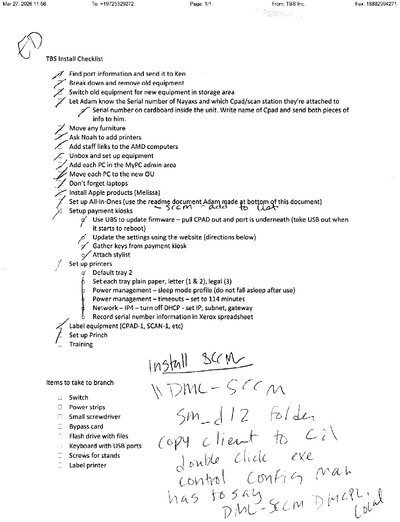 Mar 27, 2026 11:56 To: +19725329272 Page: 1/1 From: TBS Inc. Fax: 18882594271
TBS Install Checklist
Find port information and send it to Ken
Break down and remove old equipment
Switch old equipment for new equipment in storage area
Let Adam know the Serial number of Nayaxs and which Cpad/scan station they're attached to
Serial number on cardboard inside the unit. Write name of Cpad and send both pieces of
info to him.
Move any furniture
Ask Noah to add printers
Add staff links to the AMD computers
Unbox and set up equipment
Add each PC in the MyPC admin area
Move each PC to the new OU
Don't forget laptops
Install Apple products (Melissa)
Set up All-In-Ones (use the readme document Adam made at bottom of this document)
- SCCM - add to list
Setup payment kiosks
Use UBS to update firmware – pull CPAD out and port is underneath (take USB out when
it starts to reboot)
Update the settings using the website (directions below)
Gather keys from payment kiosk
Attach stylist
Set up printers
Default tray 2
Set each tray plain paper, letter (1 & 2), legal (3)
Power management – sleep mode profile (do not fall asleep after use)
Power management – timeouts – set to 114 minutes
Network – IP4 – turn off DHCP - set IP, subnet, gateway
Record serial number information in Xerox spreadsheet
Label equipment (CPAD-1, SCAN-1, etc)
Set up Princh
Training
Install SCCM
Items to take to branch
\\DML-SCCM
Switch
Power strips
Small screwdriver
Bypass card
Flash drive with files
Keyboard with USB ports
Screws for stands
Label printer
sm_d12 folder
copy client to C:\
double click exe
control config man
has to say
DML-SCCM DMCPL.
local